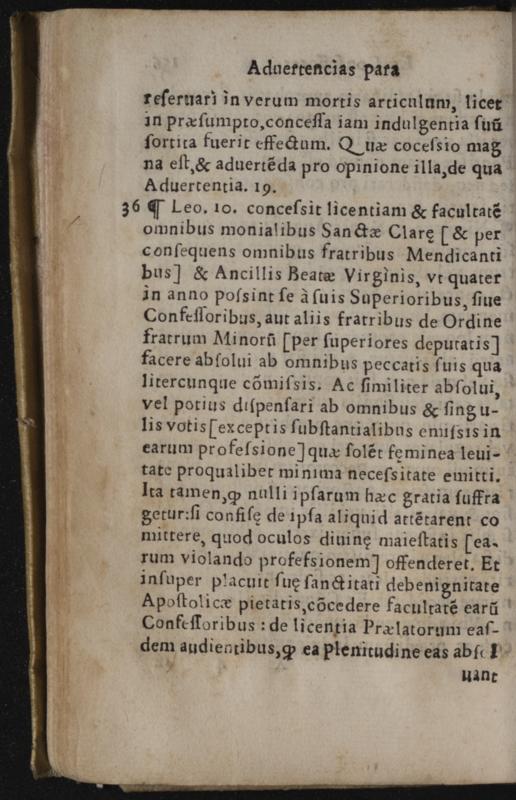 Aduertencias para
reſeruari in verum mortis articulum, licet
in præſumpto,conceſſa iam indulgentia ſuũ
ſortita fuerit effectum. Quæ coceſsio mag
na eſt,& aduertẽda pro opinione illa,de qua
Aduertentia. 19.
36 ¶ Leo. 10. conceſsit licentiam & facultatẽ
omnibus monialibus Sanctæ Clarę [& per
conſequens omnibus fratribus Mendicanti
bus] & Ancillis Beatæ Virginis, vt quater
in anno poſsint ſe à ſuis Superioribus, ſiue
Confeſſoribus, aut aliis fratribus de Ordine
fratrum Minorũ [per ſuperiores deputatis]
facere abſolui ab omnibus peccatis ſuis qua
litercunque cõmiſsis. Ac ſimiliter abſolui,
vel potius diſpenſari ab omnibus & ſingu-
lis votis[exceptis ſubſtantialibus emiſsis in
earum profeſsione]quæ ſolẽt fęminea leui-
tate proqualibet minima neceſsitate emitti.
Ita tamen,ꝙ nulli ipſarum hæc gratia ſuffra
getur:ſi confiſę de ipſa aliquid attẽtarent co
mittere, quod oculos diuinę maieſtatis [ea-
rum violando profeſsionem] offenderet. Et
inſuper placuit ſuę ſanctitati debenignitate
Apoſtolicæ pietatis,cõcedere facultatẽ earũ
Confeſſoribus : de licentia Prælatorum eaſ-
dem audientibus,ꝙ ea plenitudine eas abſol
uant